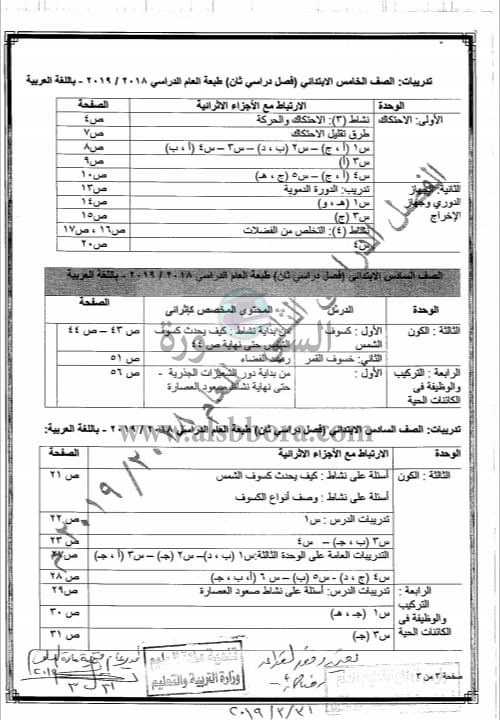 تدريبات: الصف الخامس الابتدائي (فصل دراسي ثان) طبعة العام الدراسي ٢٠١٨ / ٢٠١٩ - باللغة العربية
الوحدة الارتباط مع الأجزاء الاثرائية الصفحة
الأولى: الاحتكاك نشاط (٣): الاحتكاك والحركة ص٤
طرق تقليل الاحتكاك ص٧
س١ ( أ ، ج) – س٢ (ب ، د) – س٣ – س٤ ( أ ، ب) ص٨
س٣ (أ) ص٩
س٤ ( أ ، ج) – س٥ (ج ، هـ) ص١٠
الثانية: الجهاز الدوري وجهاز الإخراج تدريب: الدورة الدموية ص١٣
س١ (هـ ، و) ص١٤
س٣ (ج) ص١٥
نشاط (٤): التخلص من الفضلات ص١٦ ، ص١٧
س٤ ص٢٠
الصف السادس الابتدائي (فصل دراسي ثان) طبعة العام الدراسي ٢٠١٨ / ٢٠١٩ - باللغة العربية
الوحدة الدرس المحتوي المخصص كإثرائى الصفحة
الثالثة: الكون الأول: كسوف الشمس من بداية نشاط : كيف يحدث كسوف الشمس حتى نهاية ص ٤٤ ص ٤٣ – ص ٤٤
الثاني: خسوف القمر رصد الفضاء ص ٥١
الرابعة : التركيب والوظيفة فى الكائنات الحية الأول: من بداية دور الشعيرات الجذرية - حتى نهاية نشاط صعود العصارة ص ٥٦
تدريبات: الصف السادس الابتدائي (فصل دراسي ثان) طبعة العام الدراسي ٢٠١٨ / ٢٠١٩ - باللغة العربية:
www.alsbbora.com
الوحدة الارتباط مع الأجزاء الاثرائية الصفحة
الثالثة : الكون أسئلة على نشاط : كيف يحدث كسوف الشمس ص ٢١
أسئلة على نشاط : وصف أنواع الكسوف
تدريبات الدرس : س١ ص ٢٢
س٣ (ب ، جـ) – س٤ ص ٢٣
التدريبات العامة على الوحدة الثالثة: س١ (ب ، د)– س٢ (جـ) – س٣ (أ ، جـ) ص ٢٧
س٤ (ج ، د) - س٥ (ب) – س ٦ (أ، ب ، جـ) ص ٢٨
الرابعة : التركيب والوظيفة فى الكائنات الحية تدريبات الدرس: أسئلة على نشاط صعود العصارة ص ٢٩
س١ (جـ ، هـ) ص ٣٠
س٣ (جـ) ص ٣١
صفحة ٢ من ٢
وزارة التربية والتعليم
٢٠١٩/٣/٣١
الفصل الدراسي الثاني للعام ٢٠١٨ / ٢٠١٩ م
السبورة